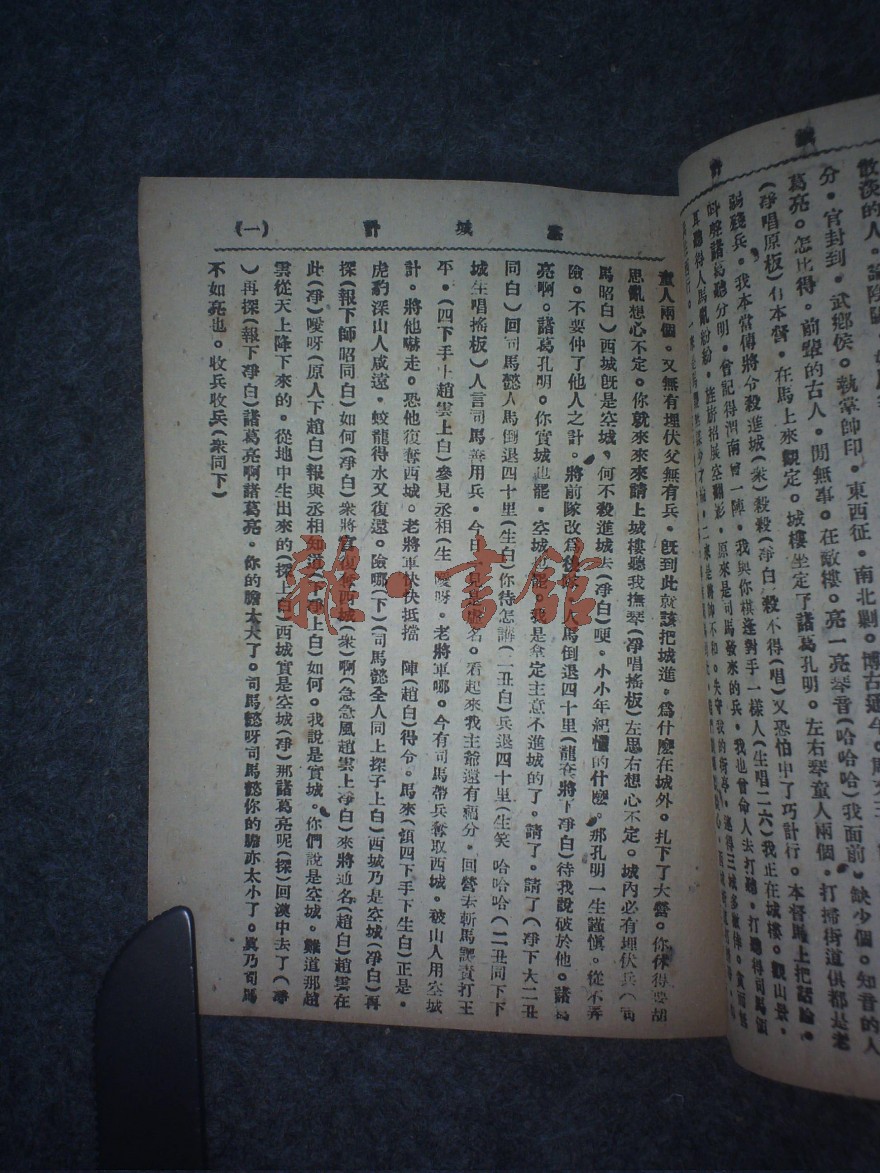 敵樓
散淡的人。論陰陽
分。官封到。武鄉侯。執掌帥印。東西征。南北剿。博古通今。周文王
葛亮。怎比得。前輩的古人。閒無事。在敵樓。亮一亮琴音(哈哈哈)我面前缺少個。知音的人
(淨唱原板)有本督。在馬上來觀定。城樓坐定了諸葛孔明。左右琴童人兩個。打掃街道俱都是老
弱殘兵。我本當傳將令殺進城(衆)殺殺(淨白)殺不得(唱)又恐怕中了巧計行。本督馬上把話論。
諸葛聽分明。曾記得渭南曾一陣。我與你棋逢對手一樣人(生唱二六)我正在城樓。觀山景。
耳聽得人馬亂紛紛。旌旂招展空翻影。原來是司馬發來的兵。我也曾命人去打聽。打聽得司馬領
空城計
(一)
童人兩個。又無有埋伏又無有兵。旣到此就該把城進。爲什麽在城外。扎下了大營。你休得要胡
思亂想心不定。你就來來來請上城樓聽我撫琴(淨唱搖板)左思右想心不定。城內必有埋伏兵(司
馬昭白)西城旣是空城。何不殺進城去(淨白)哽。小小年紀懂的什麽。那孔明一生謹愼。從不弄
險。不要仲了他人之計。將前隊改爲後隊。人馬倒退四十里(龍套將下淨白)待我說破於他。諸葛
亮啊。諸葛孔明。你實城也罷。空城也罷。我是拿定主意不進城的了。請了。請了(淨下大二丑
同白)回司馬懿人馬倒退四十里(生白)你待怎講(二丑白)兵退四十里(生笑 哈哈哈(二丑同下下
城生唱搖板)人言司馬善用兵。今日一見是虛名。看起來我主爺還有福分。回營去斬馬謖責打王
平。(四下手上趙雲上白)參見丞相(生 噯呀。老將軍哪。今有司馬帶兵奪取西城。被山人用空城
計。將他嚇走。恐他復奪西城。老將軍快快抵擋 陣(趙白)得令。馬來(領四下手下生白)正是。
虎豹深山人咸遠。蛟龍得水又復還。險哪(下)(司馬懿全人同上探子上白)西城乃是空城(淨白)再
探(報下師昭同白)如何(淨白)衆將官復奪西城(衆)啊(急急風趙雲上淨白)來將通名(趙白)趙雲在
此(淨)噯呀(原人下趙白)報與丞相知道(下淨上白)如何。我說是實城。你們說是空城。難道那趙
雲從天上降下來的。從地中生出來的(探上白)西城實是空城(淨)那諸葛亮呢(探)回漢中去了(淨
)再探(報下淨白)諸葛亮啊諸葛亮。你的膽太大了。司馬懿呀司馬懿你的膽亦太小了。眞乃司馬
不如亮也。收兵收兵(衆同下)
雜·書館